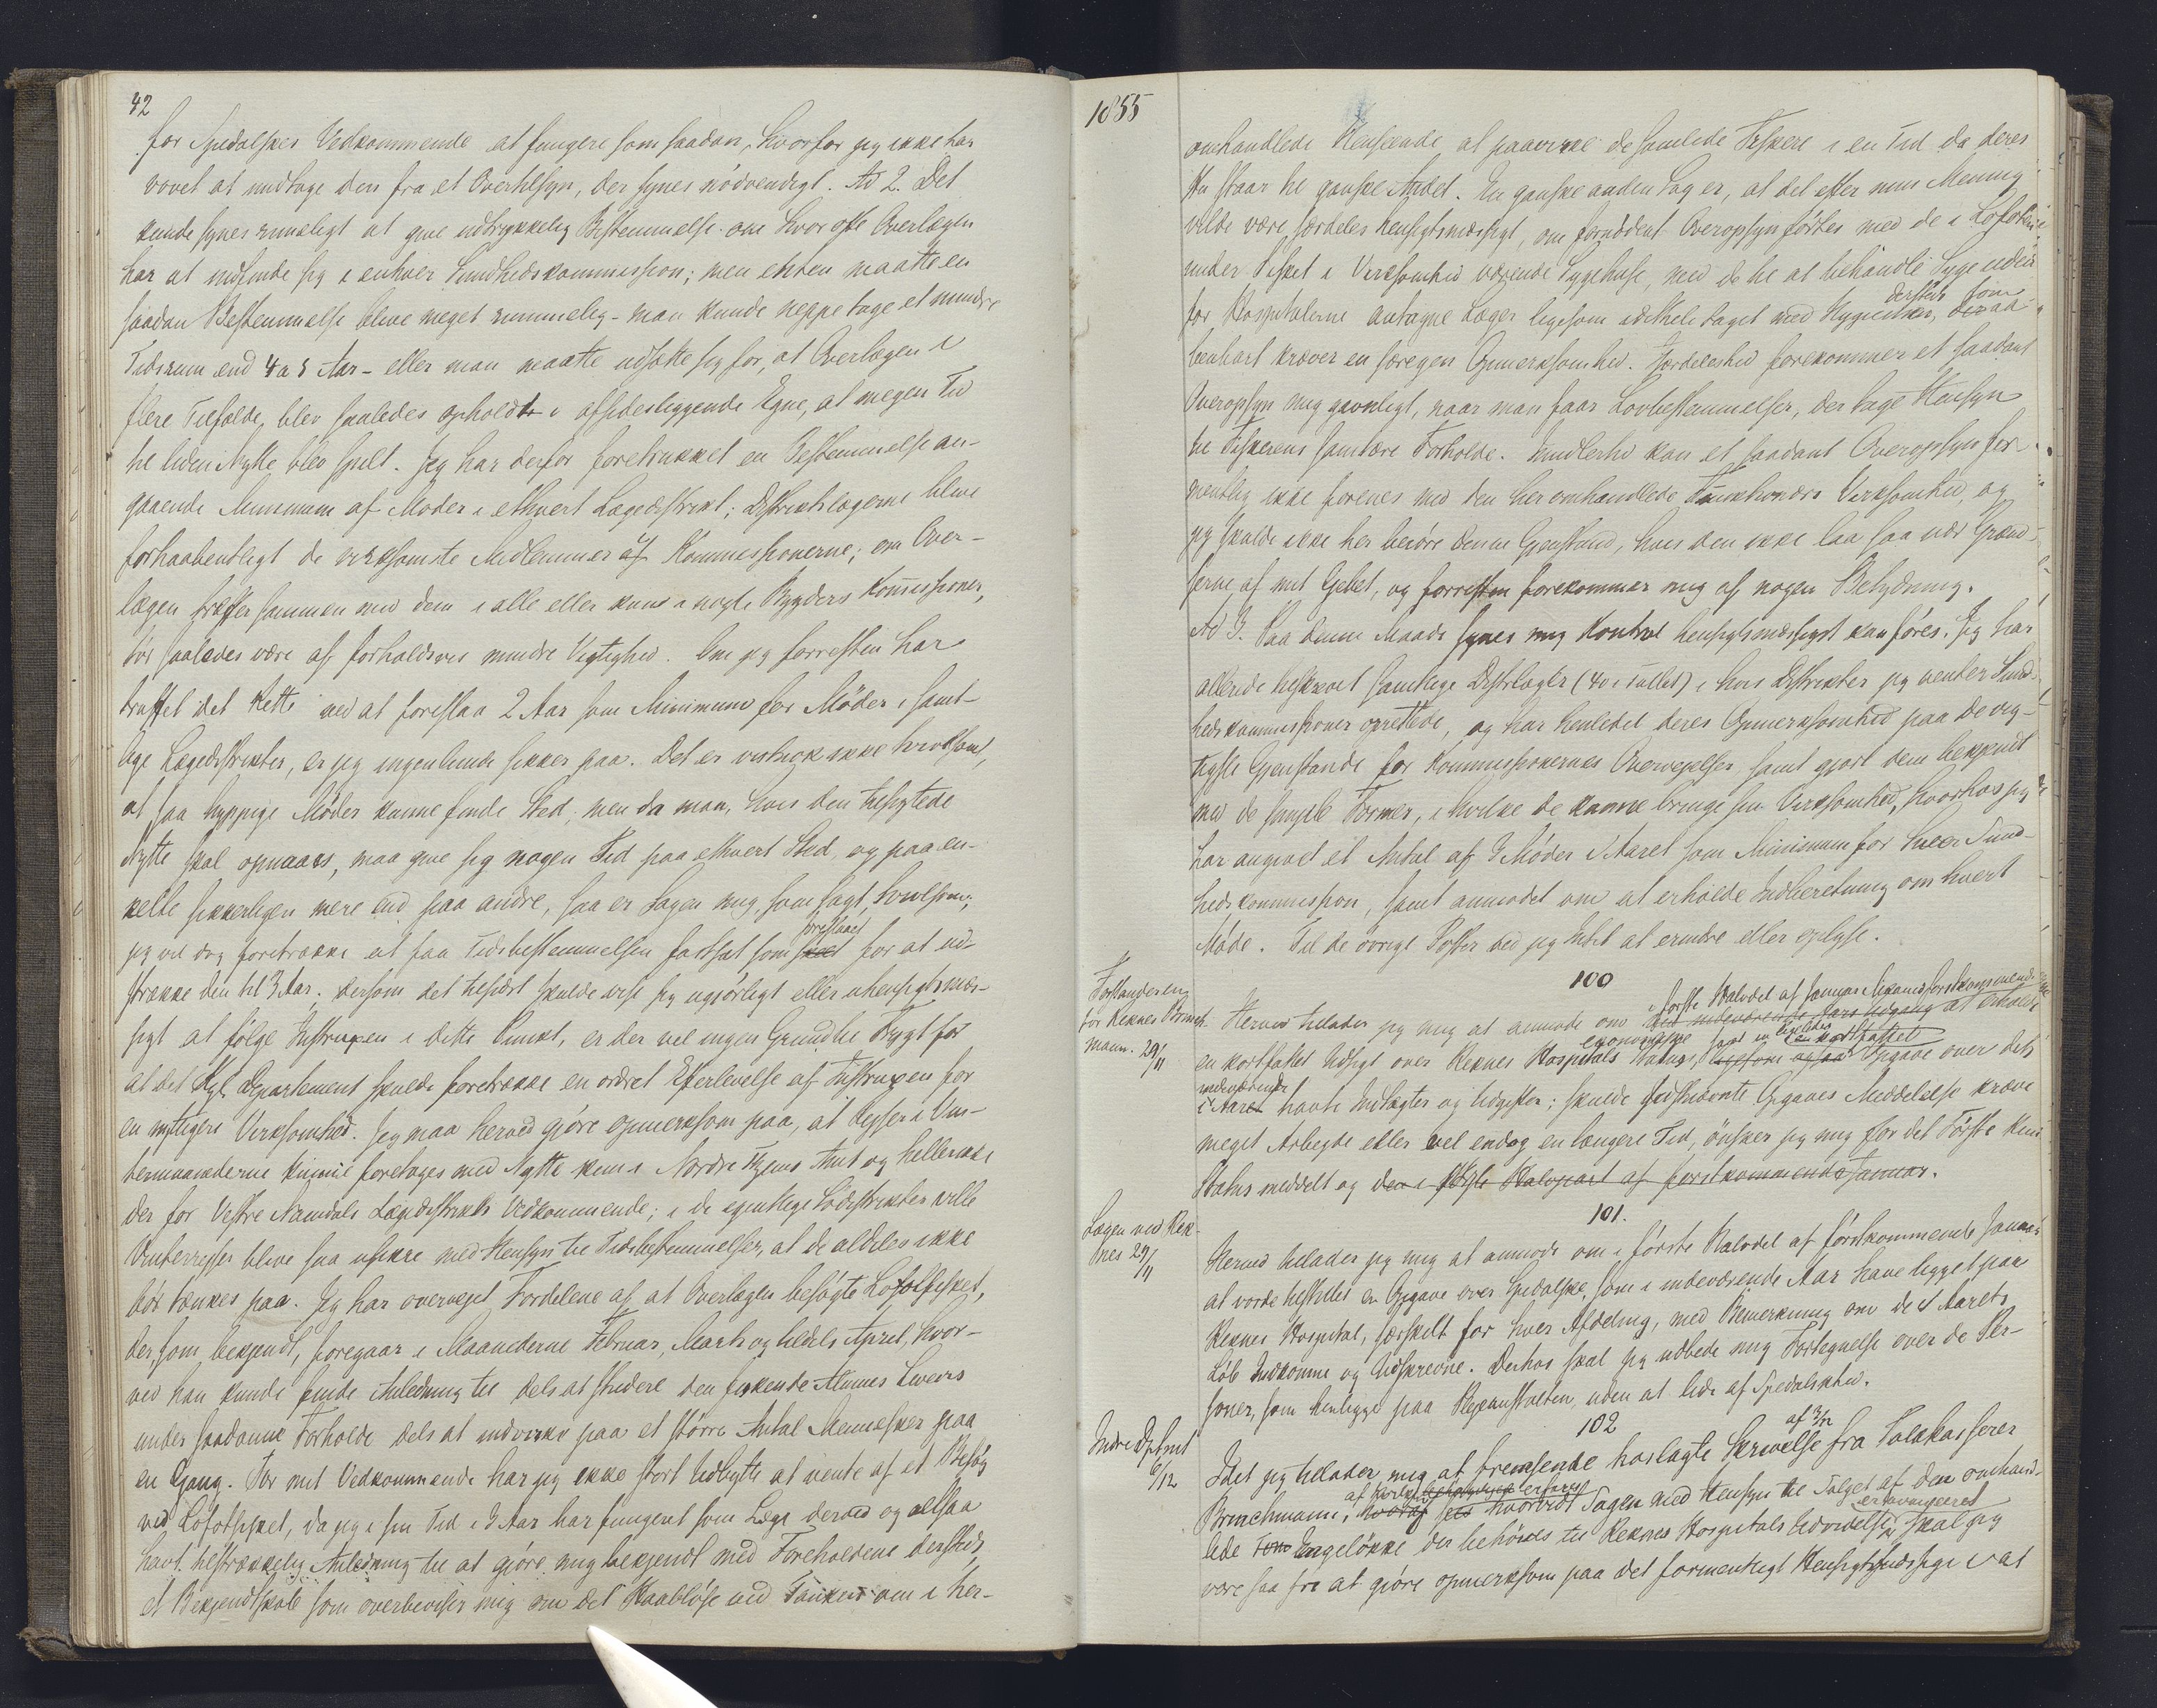 42
for Spedalskes Vedkommende at fungere som saadan, hvorfor jeg ikke har
vovet at undtage den fra et Overtilsyn, der synes nödvendigt. Ad 2. Det
kunde synes rimeligt at give udtrykkelig Bestemmelse om hvor ofte Overlægen
har at indfinde sig i enhver Sundhedskommission; men enten maatte en
saadan Bestemmelse blive meget rummelig – man kunde neppe tage et mindre
Tidsrum end 4 a 5 Aar – eller man maatte udsætte sig for, at Overlægen i
flere Tilfælde blev saaledes opholdt i afsidesliggende Egne, at megen Tid
til liden Nytte blev spildt. Jeg har derfor foretrukket en Bestemmelse an-
gaaende Minimum af Møder i ethvert Lægedistrikt; Distriktslægerne blive
forhaabentligt de virksomste Medlemmer af Kommissionerne; om Over-
lægen træffer sammen med dem i alle eller kun i nogle Bygders Kommissioner,
bör saaledes være af forholdsvis mindre Vigtighed. Om jeg forresten har
truffet det Rette ved at foreslaa 2 Aar som Minimum for Möder i samt-
lige Lægedistrikter, er jeg ingenlunde sikker paa. Det er vistnok ikke tvivlsomt,
at saa hyppige Möder kunne finde Sted; men da man, hvis den tilsigtede
Nytte skal opnaaes, maa give sig nogen Tid paa ethvert Sted og paa en-
kelte sikkerligen mere end paa andre, saa er Sagen mig, som sagt, tvivlsom;
jeg vil dog foretrække at faa Tidsbestemmelsen fastsat som foreslaaet for at ud-
strække den til 3 Aar. Dersom det tilsidst skulde vise sig ugjörligt eller uhensigtsmæs-
sigt at fölge Instruxen i dette Punkt, er der vel ingen Grund til Frygt for
at det Kgl. Departement skulde foretrække en ordret Efterlevelse af Instruxen for
en nyttigere Virksomhed. Jeg maa herved gjöre opmerksom paa, at Reiser i Vin-
termaanederne kunne foretages med Nytte kun i Nordre Bergens Amt og heller ikke
der for Vestre Namdals Lægedistrikts Vedkommende; i de egentlige Södistrikter ville
Vinterreiser blive saa usikre med Hensyn til Tidsbestemmelser, at de aldeles ikke
bör tænkes paa. Jeg har overveiet Fordelene af at Overlægen besögte Lofotfisket,
der, som bekjendt, foregaar i Maanederne Februar, Marts og tildels April, hvor-
ved han kunde finde Anledning til dels at studere den fiskende Almues Levevis
under saadanne Forholde dels at indvirke paa et större Antal Mennesker paa
en Gang. For mit Vedkommende har jeg ikke stort Udbytte at vente af et Besög
ved Lofotfisket, da jeg i sin Tid i 3 Aar har fungeret som Læge derved og altsaa
havt tilstrækkelig Anledning til at gjöre mig bekjendt med Forholdene dersteds,
et Bekjendtskab som overbeviser mig om det Haablöse ved Tanken om i her-
1855
omhandlede Henseende at paavirke de samlede Fiskere i en Tid da deres
Hu staar til ganske Andet. En ganske anden Sag er, at det efter min Mening
vilde være særdeles hensigtsmæssigt, om foruddent Overopsyn förtes med de i Lofoten
under Fisket i Virksomhed værende Sygehuse, med de til at behandle Syge uden-
for Hospitalerne antagne Læger ligesom idethele taget med Hygieinen dersteds, som aa-
benbart kræver en særegen Opmerksomhed. Særdeleshed forekommer et saadant
Overopsyn mig gavnligt, naar man faar Lovbestemmelser, der tage Hensyn
til Fiskerens sanitære Forholde. Imidlertid kan et saadant Overopsyn for-
mentlig ikke forenes med den her omhandlede Funktionærs Virksomhed, og
jeg skulde ikke her beröre denne Gjenstand, hvis den ikke laa saa nær Grænd-
serne af mit Gebet, og forresten forekommer mig af nogen Betydning.
Ad 3. Paa denne Maade synes mig Kontrol hensigtsmæssigst kan föres. Jeg har
allerede tilskrevet samtlige Distrlæger (40 i Tallet) i hvis Distrikter jeg venter Sund-
hedskommissioner oprettede, og har henledet deres Opmerksomhed paa de vig-
tigste Gjenstande for Kommissionernes Overveielser samt gjort dem bekjendt
med de simple Former, i hvilke de kunne bringe sin Virksomhed, hvorhos jeg
har angivet et Antal af 3 Möder i Aaret som Minimum for hver Sund-
hedskommission, samt anmodet om at erholde Indberetning om hvert
Möde. Til de övrige Poster ved jeg Intet at erindre eller oplyse.
100
Forstanderen
for Reknes Brinch-
mann. 29/11
i förste Halvdel af Januar Maaned förstkommende
Herved tillader jeg mig at anmode om ved indeværende Aars Udgang at erholde
en kortfattet Udsigt over Reknes Hospitals economiske Status, samt en ligeledes kortfattet ligesom ogsaa Opgave over dets
indeværende
i Aaret havte Indtægter og Udgifter; skulde sidstnævnte Opgaves Meddelelse kræve
meget Arbeide eller vel endog en længere Tid, önsker jeg mig for det Förste kun
Status meddelt og den i förste Halvpart af förstkommende Januar.
101.
Lægen ved Rek-
nes 29/11
Herved tillader jeg mig at anmode om i förste Halvdel af förstkommende Januar
at vorde tilstillet en Opgave over Spedalske, som i indeværende Aar have ligget paa
Reknes Hospital, særskilt for hver Afdeling, med Bemerkning om de i Aarets
Löb Indkomne og Udskrevne. Derhos skal jeg udbede mig Fortegnelse over de Per-
soner, som henligge paa Pleieanstalten uden at lide af Spedalskhed.
102
Indre Dptmt
6/12
Idet jeg tillader mig at fremsende hoslagte Skrivelse af 3/12 fra Toldkasserer
Brinchmann, af hvilken erfares hvorvidt Sagen med Hensyn til Salget af den omhand-
lede Engelökke der behöves til Reknes Hospitals Udvidelse er avanceret skal jeg
være saa fri at gjöre opmerksom paa det formentligt Hensigtsmæssige i at